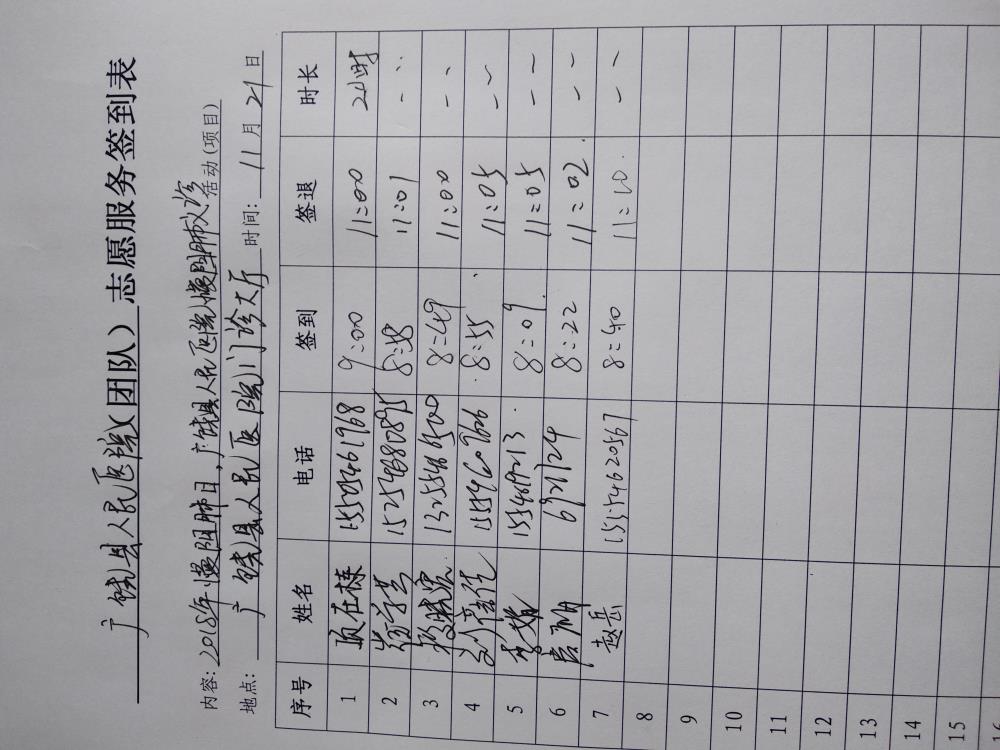 广饶县人民医院（团队）志愿服务签到表
内容：2018年慢阻肺日，广饶县人民医院慢阻肺义诊活动（项目）
地点：广饶县人民医院门诊大厅 时间：11月21日
序号 姓名 电话 签到 签退 时长
1 在栋 15505461968 9:00 11:00 2小时
2 15254680895 8:58 11:01 - -
3 8:49 11:00 - -
4 8:55 11:05 - -
5 李 8:09 11:05 - -
6 6921124 8:22 11:02 - -
7 赵岳 15154620567 8:40 11:10 - -
8
9
10
11
12
13
14
15
16